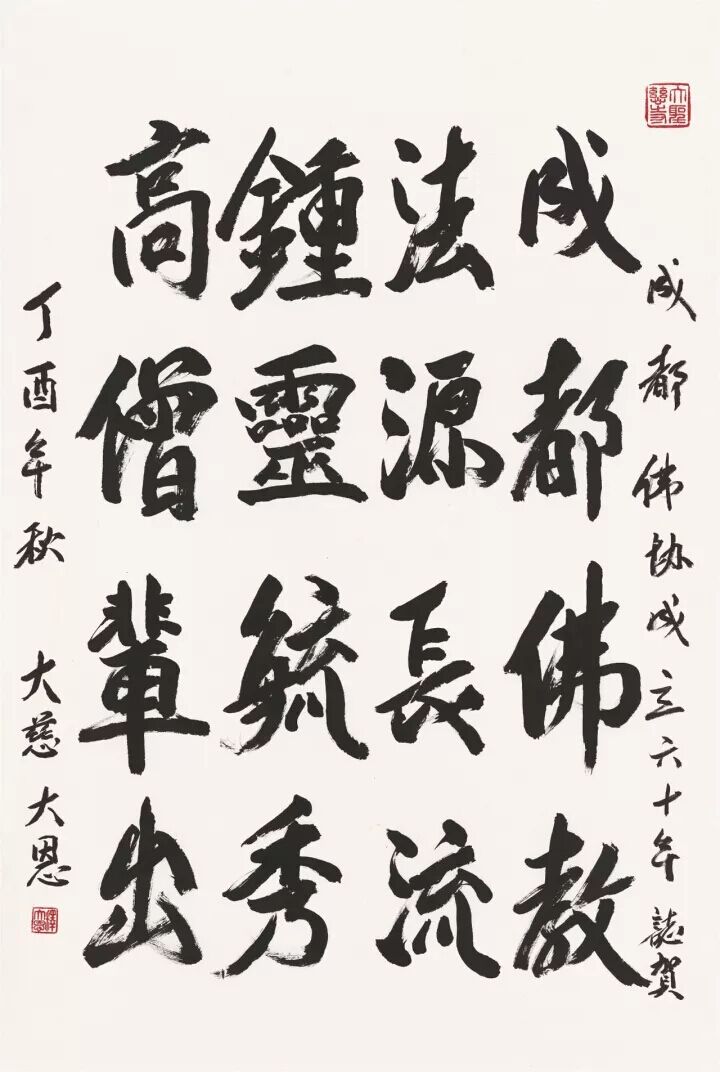 成都佛協成立六十年誌賀
成都佛教
法源長流
鍾靈毓秀
高僧輩出
丁酉年秋
大慈大恩
大聖慈寺